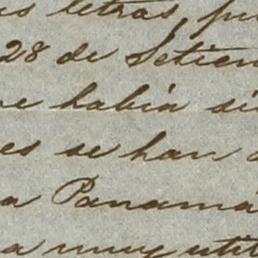 us letras pu
28 de Setiem
ue habia si
es se han d
a Panamá
a muy util